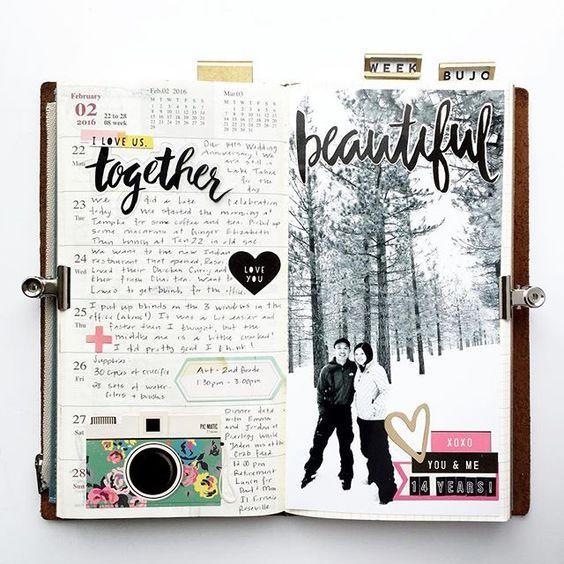 WEEK
BUJO
February
02
2016
22 to 28
08 week
Feb.02 2016
M T W T F S S
Mar.03
M T W T F S S
I LOVE US.
together
beautiful
22
Our 14th Wedding
Anniversary! We
are still in
Lake Tahoe
for the
day
23
Tue
We did a late celebration
today. We started the morning at
Temple for some coffee and tea. Picked up
some macarons at Ginger Elizabeth
Then lunch at Ten 22 in old sac
24
Wed
We went to the new Indian
restaurant that opened,
loved their Chicken Curry and
their fresh Chai tea. Went to
Lowe's to get blinds for the office
LOVE
YOU
25
Thu
I put up blinds on the 3 windows in the
office (alone!) It was a lot easier and
faster than I thought but the
middle one is a little crooked!
I did pretty good I think!
26
Fri
Supplies:
30 copies of crucifix
28 sets of water-
colors + brushes
Art - 2nd Grade
1:30pm - 3:00pm
27
28
PIC MATIC
Dinner date
with Emma
and Jordan at
while
Jaden was at the
Crab Feed
12:00 pm
Retirement
Lunch for
Dad + Mom
Il Fornaio
Roseville
XOXO
YOU & ME
14 YEARS!